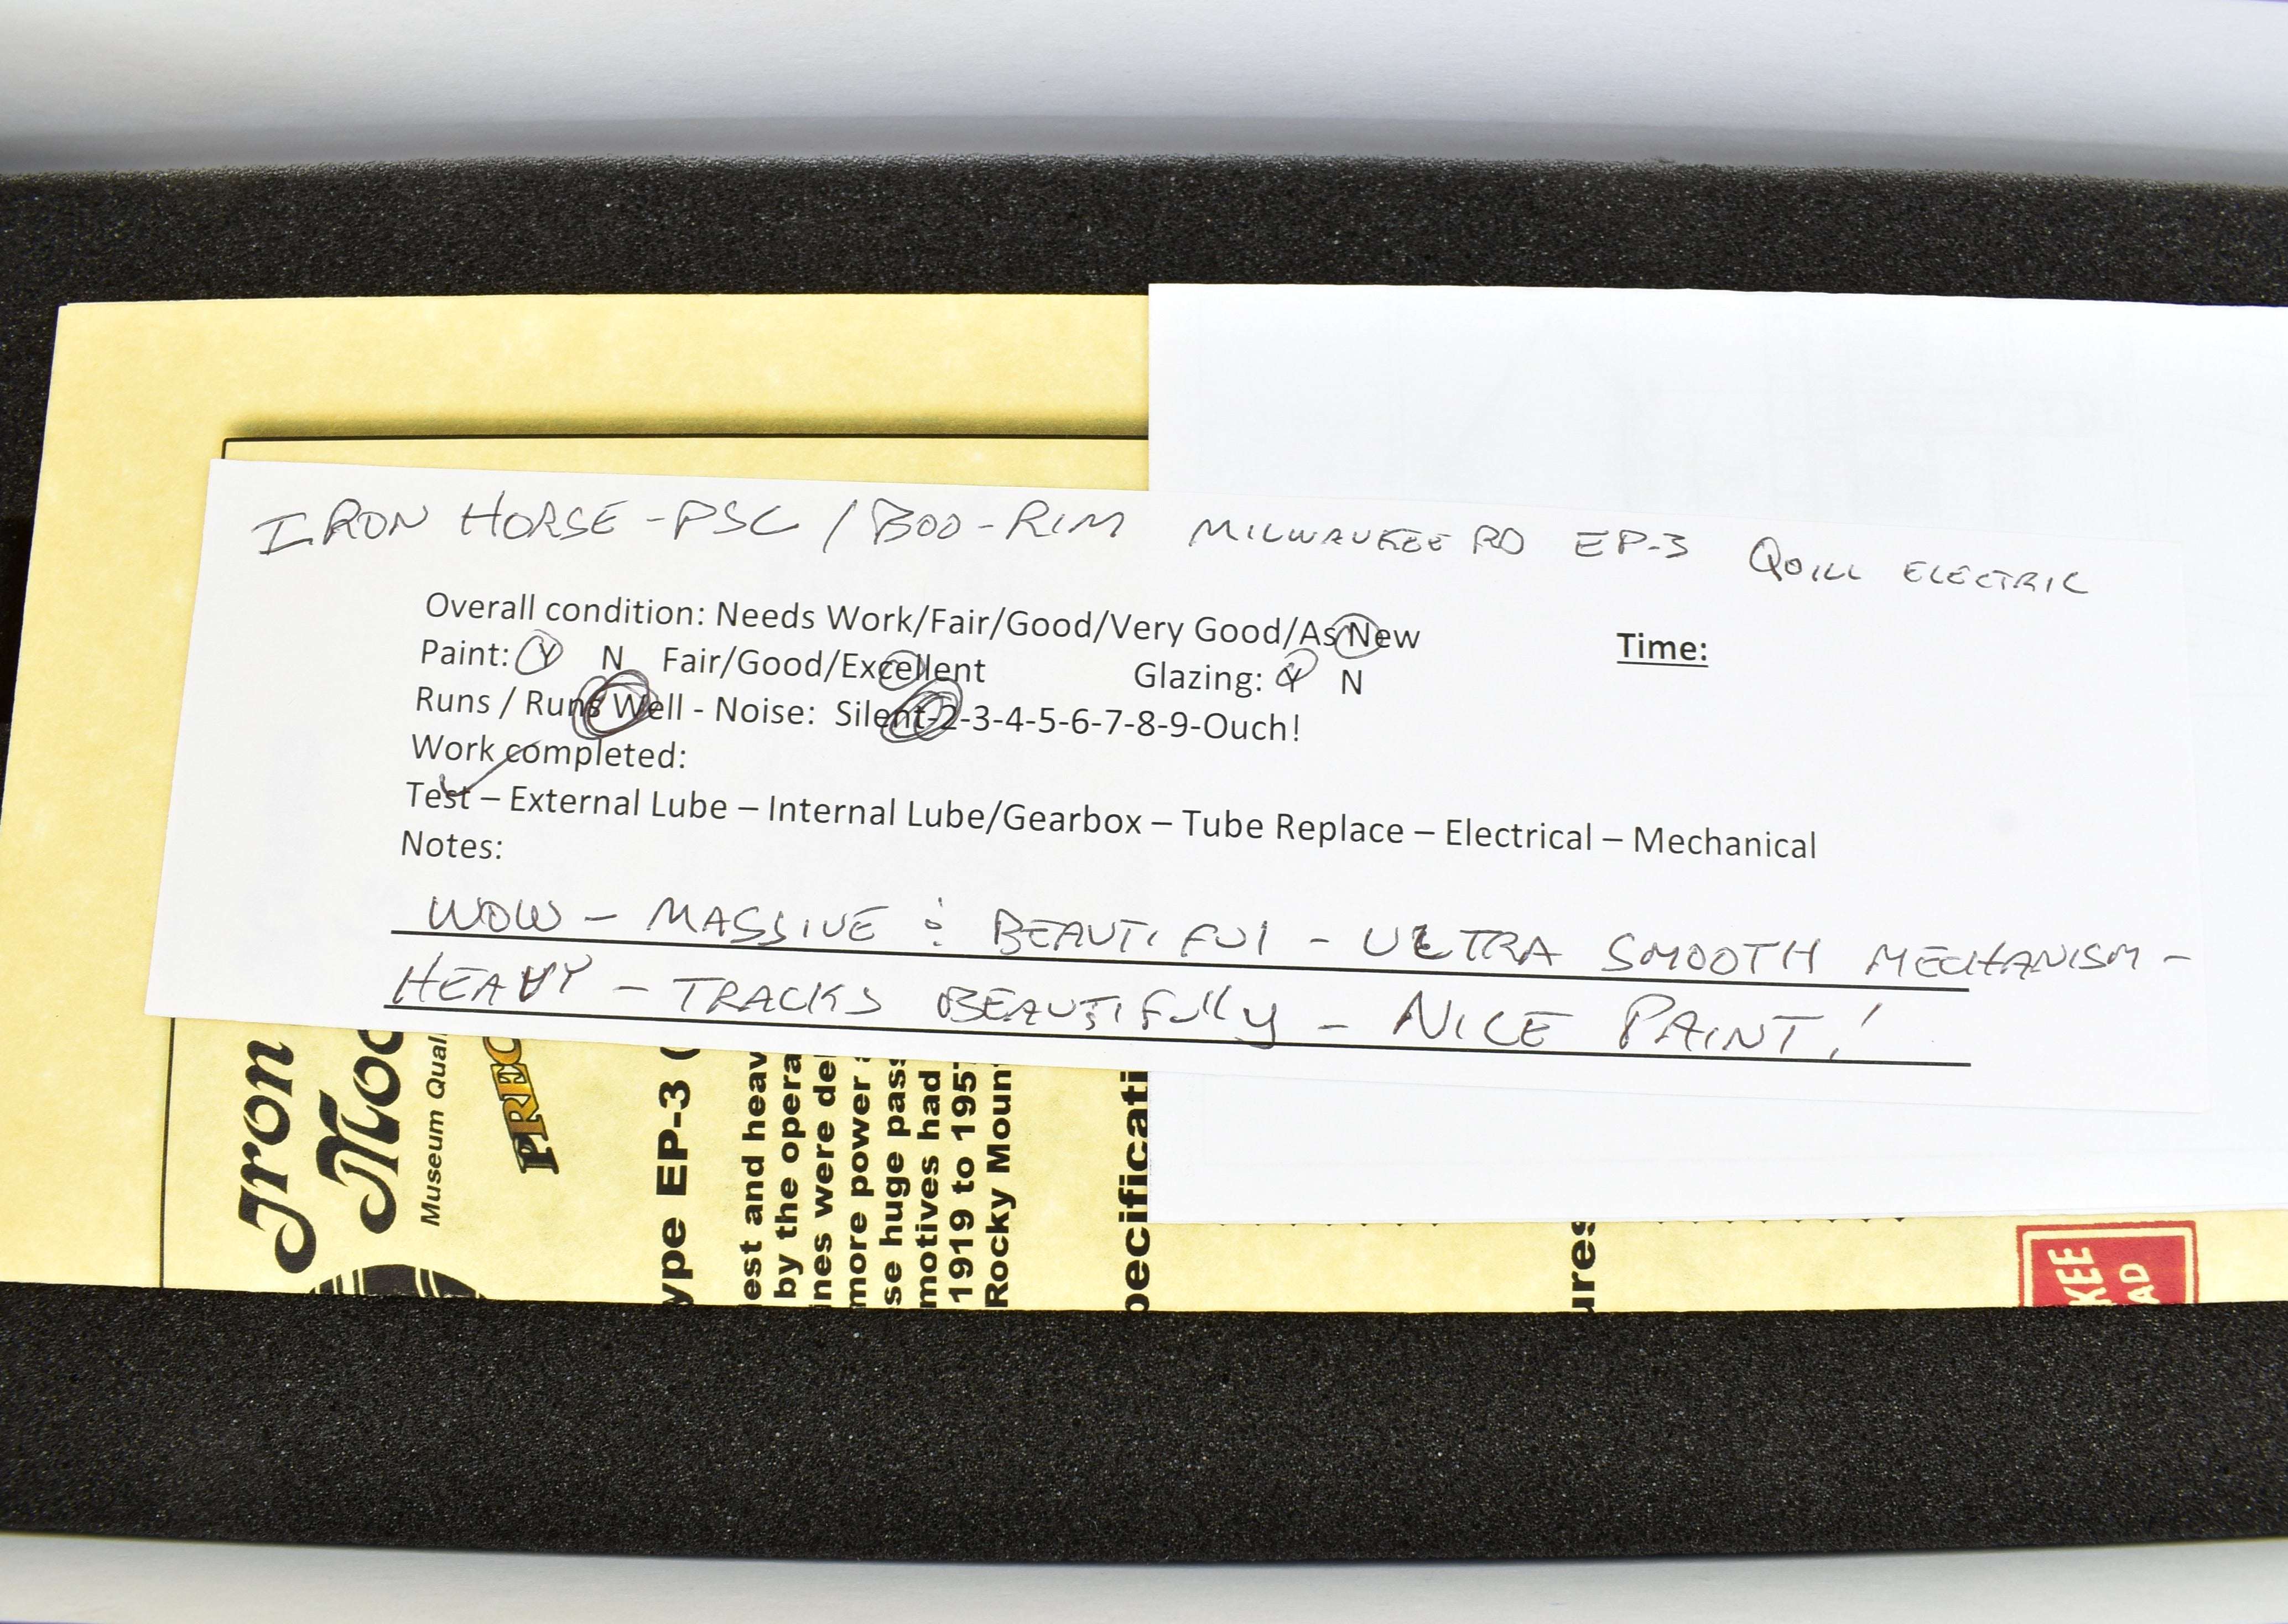 IRON HORSE - PSC / BOO-RIM MILWAUKEE RD EP-3 QUILL ELECTRIC
Overall condition: Needs Work/Fair/Good/Very Good/As New
Time:
Paint: Y N Fair/Good/Excellent Glazing: Y N
Runs / Runs Well - Noise: Silent-2-3-4-5-6-7-8-9-Ouch!
Work completed:
Test – External Lube – Internal Lube/Gearbox – Tube Replace – Electrical – Mechanical
Notes:
WOW - MASSIVE & BEAUTIFUl - ULTRA SMOOTH MECHANISM -
HEAVY - TRACKS BEAUTIFully - NICE PAINT!
Iron
Moc
Museum Qual
PREC
ype EP-3 (
est and heav
by the opera
ines were de
more power
se huge pass
motives had
1919 to 195
Rocky Moun
pecificati
ures
KEE
AD